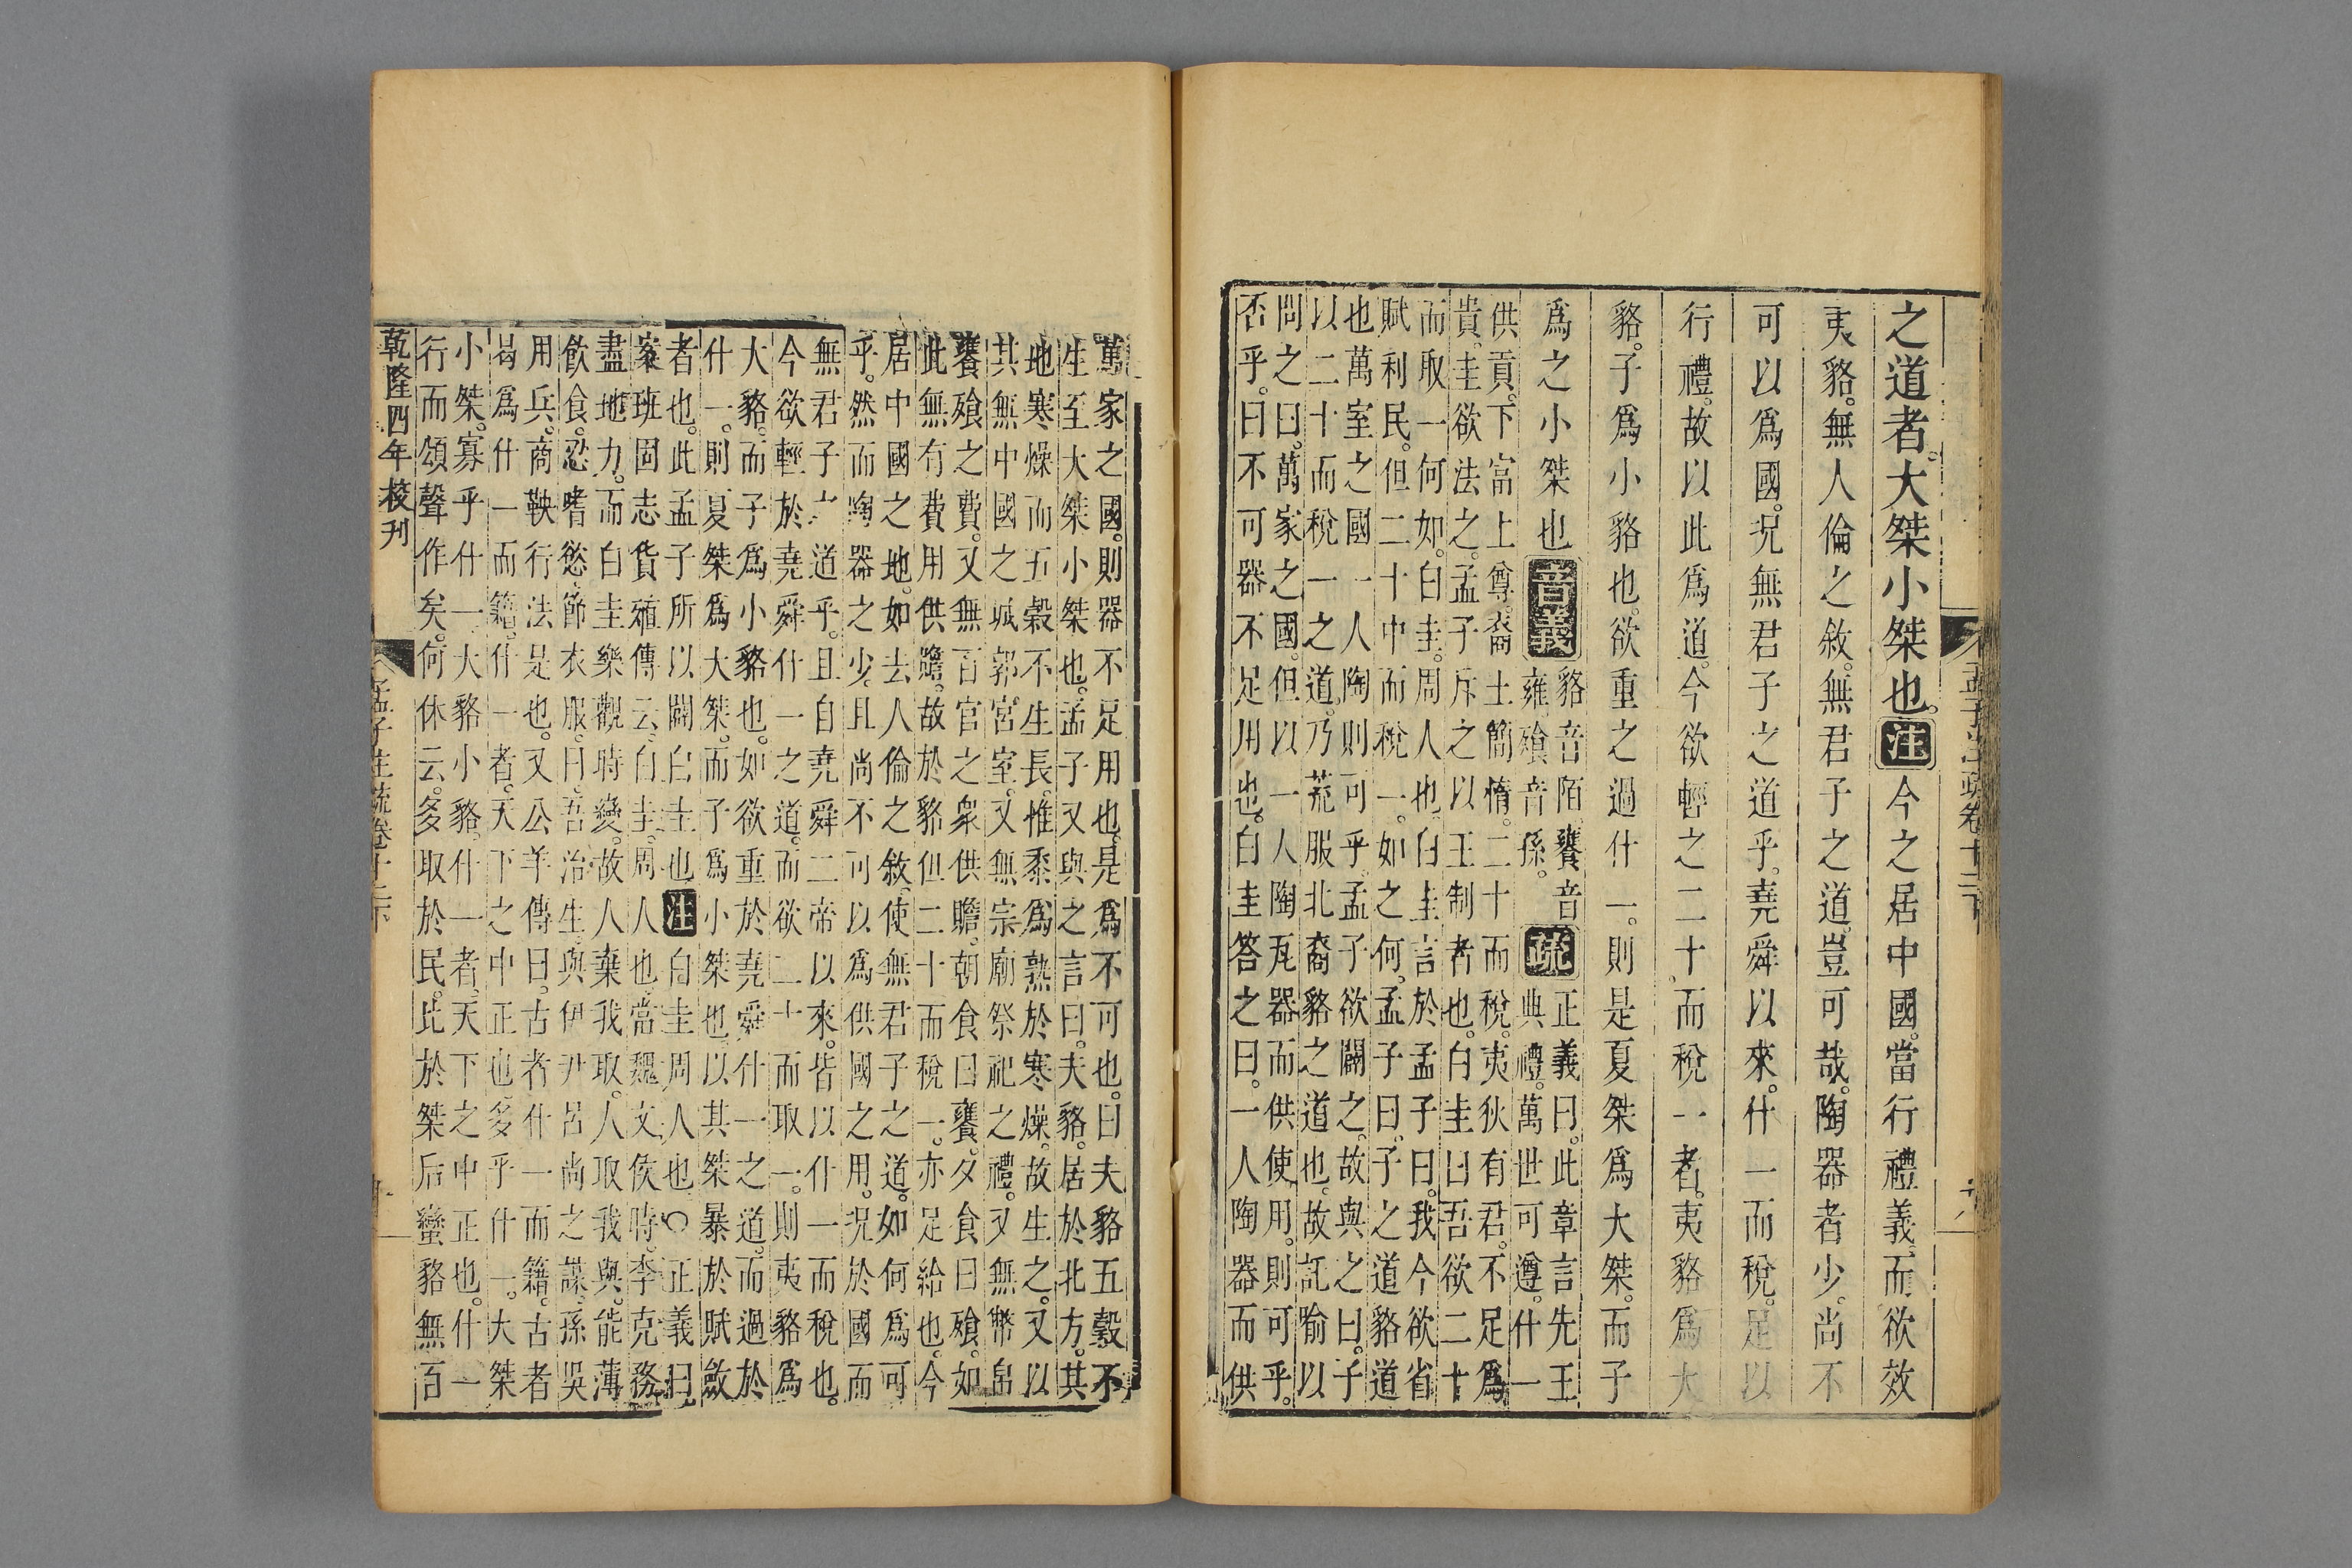 孟子注疏卷十二下
之道者。大桀小桀也。注今之居中國。當行禮義。而欲效
夷貉。無人倫之敘。無君子之道。豈可哉。陶器者少。尚不
可以爲國。況無君子之道乎。堯舜以來。什一而稅。足以
行禮。故以此爲道。今欲輕之二十而稅一者。夷貉爲大
貉。子爲小貉也。欲重之過什一。則是夏桀爲大桀。而子
爲之小桀也音義貉音陌饔音
雍飱音孫。疏正義曰。此章言先王
典禮。萬世可遵。什一
供貢。下富上尊。裔土簡惰。二十而稅。夷狄有君。不足爲
貴。圭欲法之。孟子斥之以王制者也。白圭曰吾欲二十
而取一何如。白圭。周人也。白圭言於孟子曰。我今欲省
賦利民。但二十中而稅一。如之何。孟子曰。子之道貉道
也萬室之國一人陶則可乎。孟子欲闢之。故與之曰。子
以二十而稅一之道。乃荒服北裔貉之道也。故託喻以
問之曰。萬家之國。但以一人陶瓦器而供使用。則可乎。
否乎。曰不可器不足用也。白圭答之曰。一人陶器而供
萬家之國。則器不足用也。是爲不可也。曰夫貉五穀不
生至大桀小桀也。孟子又與之言曰。夫貉。居於北方。其
地寒燥而五穀不生長。惟黍爲熟於寒燥。故生之。又以
其無中國之城郭。宮室。又無宗廟祭祀之禮。又無幣帛
饔飱之費。又無百官之衆供贍。朝食曰饔。夕食曰飱。如
此無有費用供贍。故於貉但二十而稅一。亦足給也。今
居中國之地。如去人倫之敘。使無君子之道。如何爲可
乎。然而陶器之少。且尚不可以爲供國之用。況於國而
無君子之道乎。且自堯舜二帝以來。皆以什一而稅也。
今欲輕於堯舜什一之道。而欲二十而取一。則夷貉爲
大貉。而子爲小貉也。如欲重於堯舜什一之道。而過於
什一。則夏桀爲大桀。而子爲小桀也。以其桀暴於賦斂
者也。此孟子所以闢白圭也注白圭周人也○正義曰
案班固志貨殖傳云。白圭。周人也。當魏文侯時。李克務
盡地力。而白圭樂觀時變。故人棄我取。人取我與。能薄
飲食。忍嗜慾。節衣服。曰。吾治生。與伊尹呂尚之謀。孫吳
用兵。商鞅行法是也。又公羊傳曰。古者什一而籍。古者
曷爲什一而籍。什一者。天下之中正也。多乎什一。大桀
小桀。寡乎什一。大貉小貉。什一者。天下之中正也。什一
行而頌聲作矣。何休云。多取於民。比於桀后蠻貉無百
乾隆四年校刊
孟子注疏卷十二下